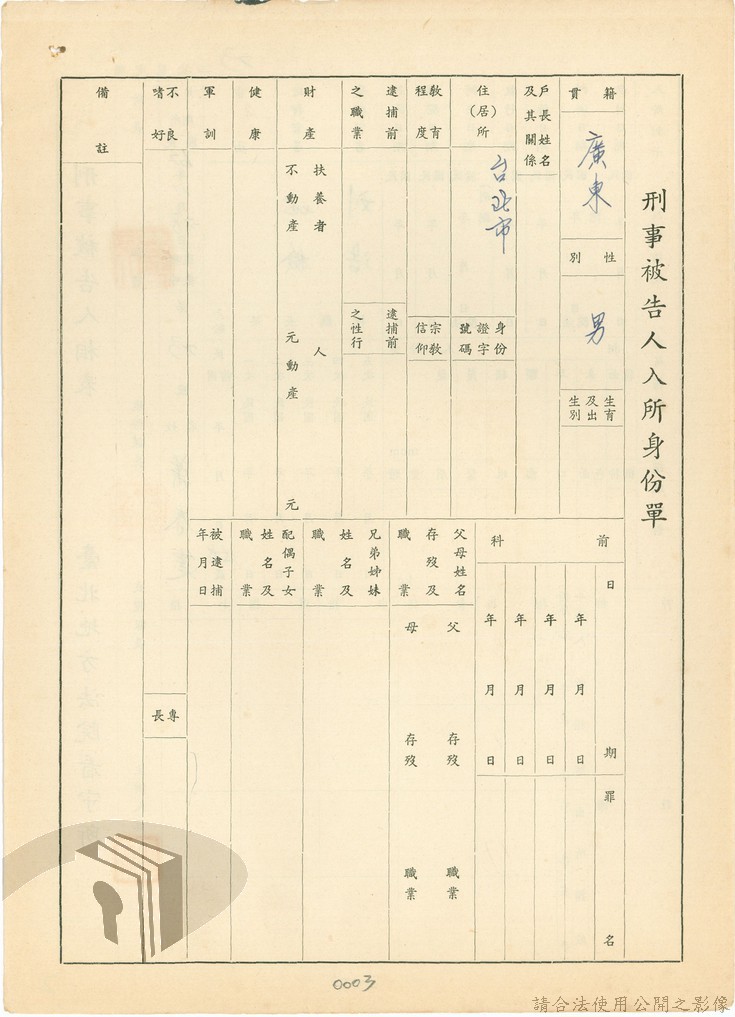 刑事被告人入所身份單
籍貫
廣東
性別
男
生育及出生別
戶長姓名及其關係
住(居)所
台北市
身份證字號碼
教育程度
宗教信仰
逮捕前之職業
逮捕前之性行
財產
扶養者 人
不動產 元動產 元
健康
軍訓
不良嗜好
專長
備註
前科
日期
年 月 日
年 月 日
年 月 日
年 月 日
罪名
父母姓名存歿及職業
父 存歿 職業
母 存歿 職業
兄弟姊妹姓名及職業
配偶子女姓名及職業
被逮捕年月日
0003
請合法使用公開之影像